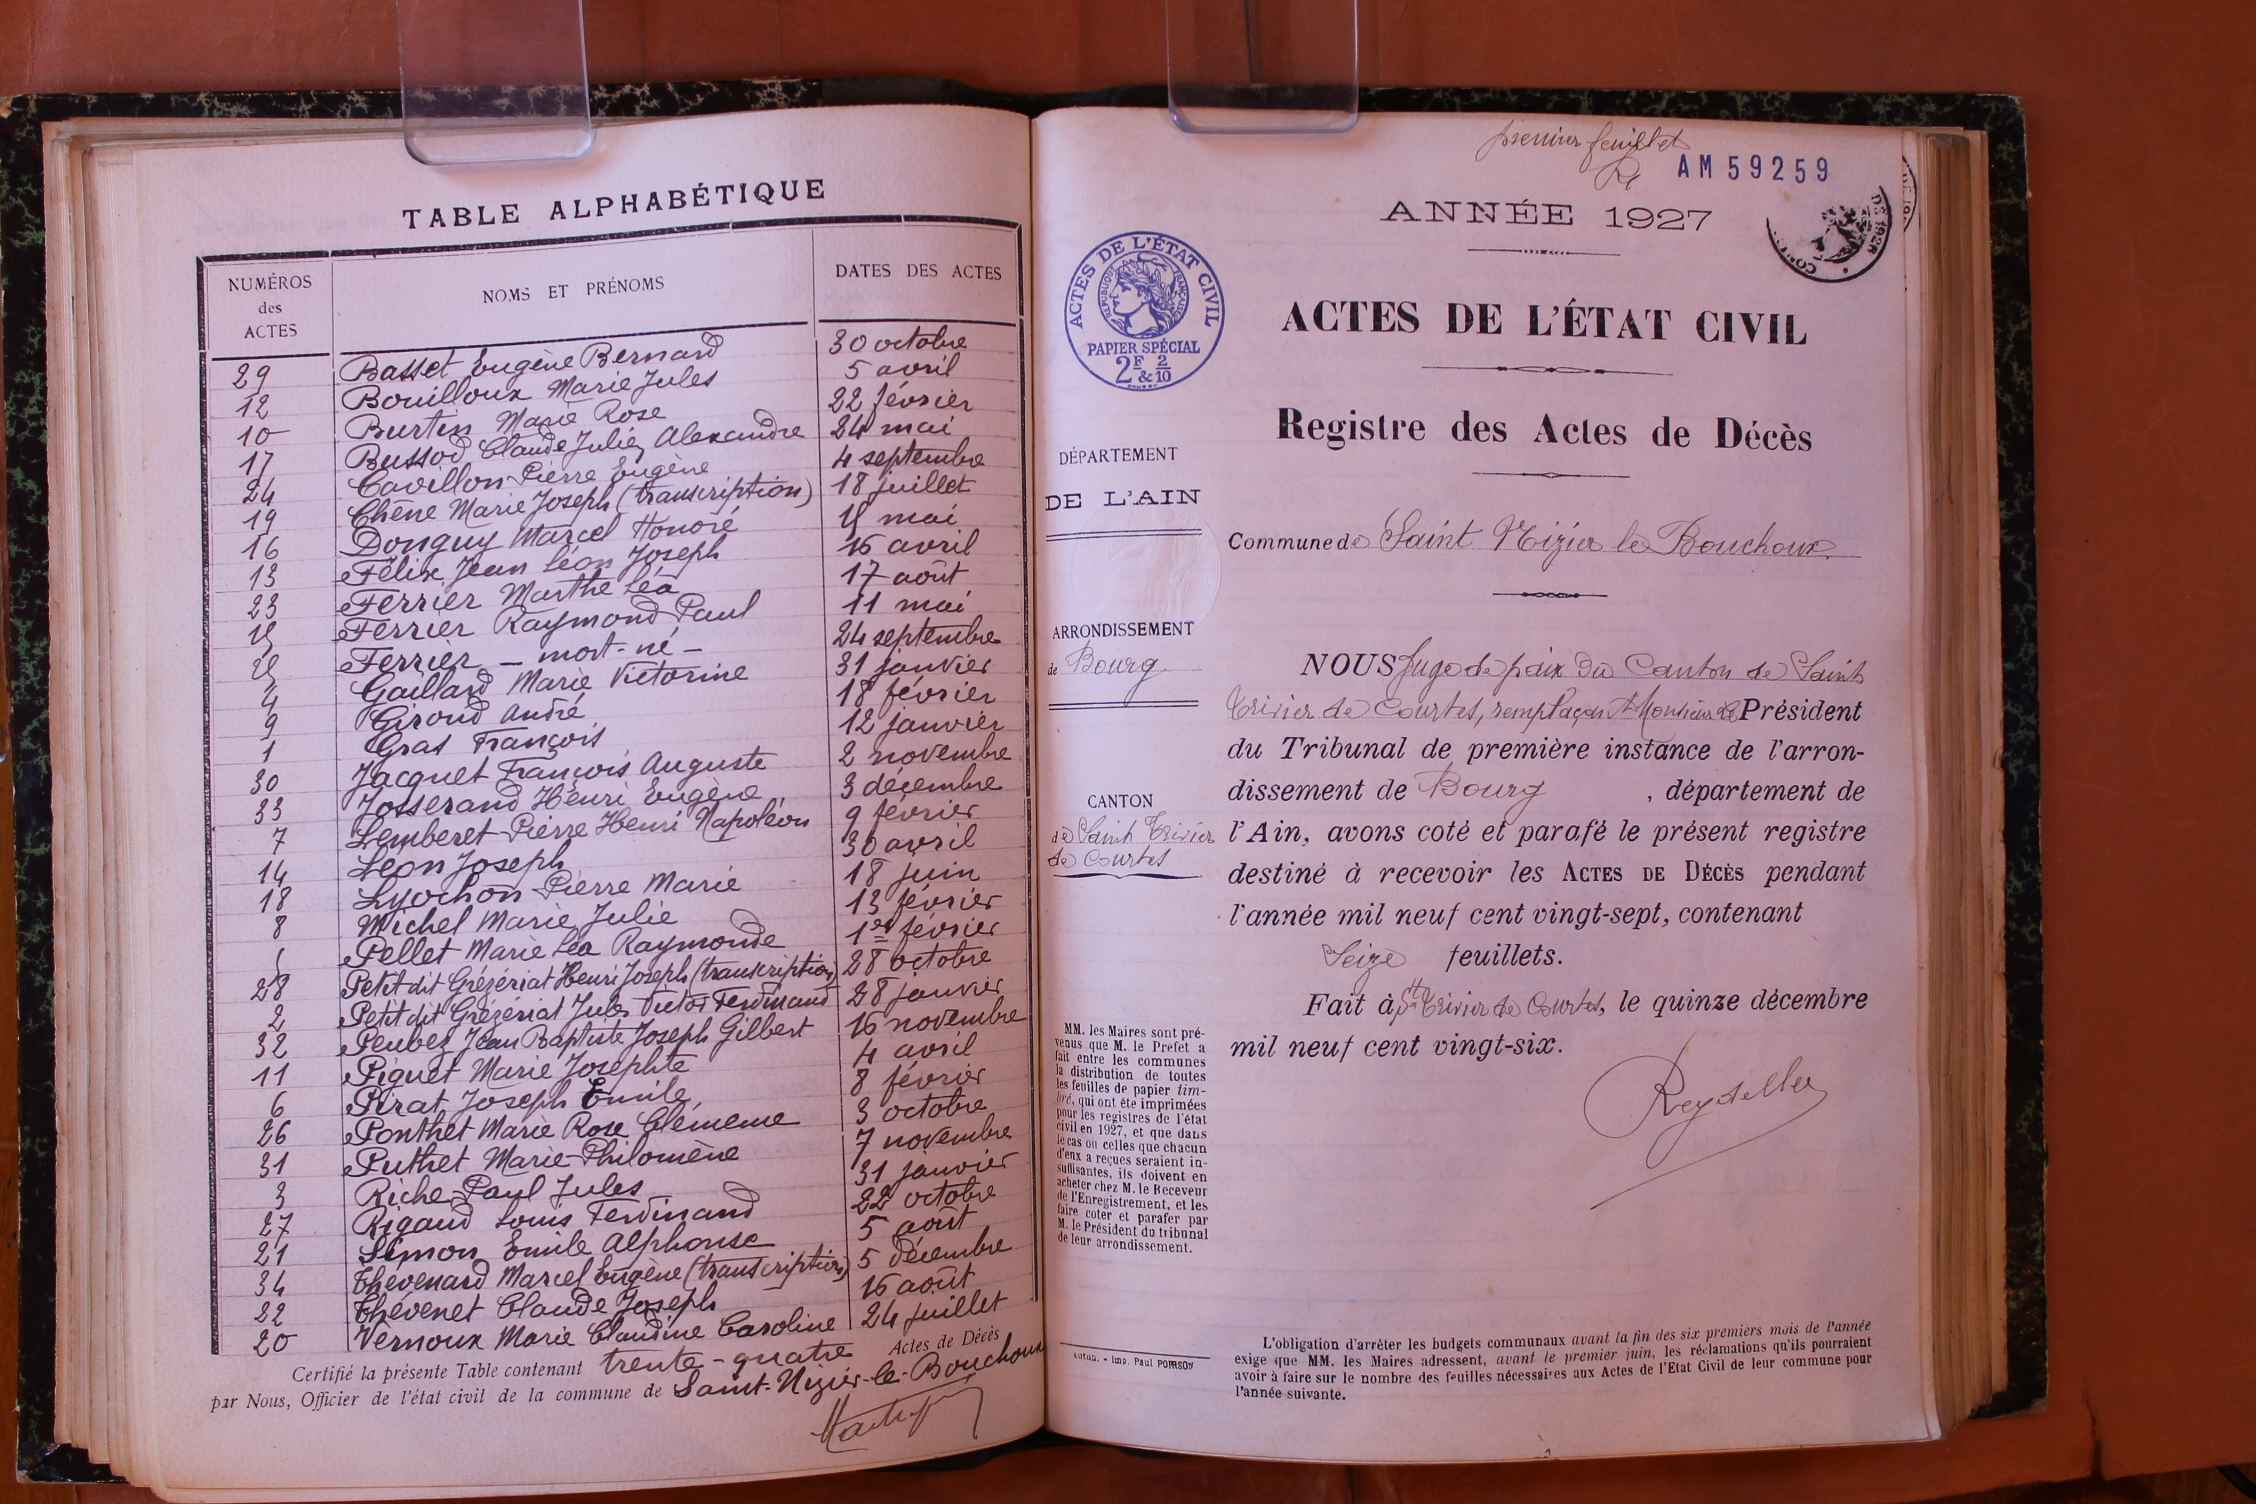 TABLE ALPHABÉTIQUE
NUMÉROS des ACTES NOMS ET PRÉNOMS DATES DES ACTES
29 Basset Eugène Bernard 30 octobre
12 Bouilloux Marie Jules 5 avril
10 Burtin Marie Rose 22 février
17 Bussod Claude Julien Alexandre 24 mai
24 Cavillon Pierre Eugène 4 septembre
19 Chêne Marie Joseph (transcription) 18 juillet
16 Donguy Marcel Honoré 15 mai
13 Félix Jean Léon Joseph 16 avril
23 Ferrier Marthe Léa 17 août
15 Ferrier Raymond Paul 11 mai
25 Ferrier - mort-né - 24 septembre
4 Gaillard Marie Victorine 31 janvier
9 Giroud André 18 février
1 Gras François 12 janvier
30 Jacquet François Auguste 2 novembre
33 Josserand Henri Eugène 3 décembre
7 Lemberet Pierre Henri Napoléon 9 février
14 Léon Joseph 30 avril
18 Lyochon Pierre Marie 18 juin
8 Michel Marie Julie 13 février
Pellet Marie Léa Raymonde 1er février
28 Petit dit Grézériat Henri Joseph (transcription) 28 octobre
2 Petit dit Grézériat Jules Victor Ferdinand 28 janvier
32 Peubez Jean Baptiste Joseph Gilbert 16 novembre
11 Piguet Marie Josephte 4 avril
6 Pirat Joseph Emile 8 février
26 Ponthet Marie Rose Clémence 3 octobre
31 Puthet Marie-Philomène 7 novembre
3 Riche Paul Jules 31 janvier
27 Rigaud Louis Ferdinand 22 octobre
21 Simon Emile Alphonse 5 août
34 Thévenard Marcel Eugène (transcription) 5 décembre
22 Thévenet Claude Joseph 16 août
20 Vernoux Marie Claudine Caroline 24 juillet
Certifié la présente Table contenant trente-quatre Actes de Décès
par Nous, Officier de l'état civil de la commune de Saint-Nizier-le-Bouchoux
premier feuillet
AM 59259
ANNÉE 1927
ACTES DE L'ÉTAT CIVIL
RÉPUBLIQUE FRANÇAISE
PAPIER SPÉCIAL
2F & 2/10
ACTES DE L'ÉTAT CIVIL
Registre des Actes de Décès
DÉPARTEMENT
DE L'AIN
Commune de Saint Nizier le Bouchoux
ARRONDISSEMENT
de Bourg
CANTON
de Saint Trivier
de Courtes
NOUS Juge de paix du Canton de Saint
Trivier de Courtes, remplaçant Monsieur le Président
du Tribunal de première instance de l'arron-
dissement de Bourg, département de
l'Ain, avons coté et parafé le présent registre
destiné à recevoir les ACTES DE DÉCÈS pendant
l'année mil neuf cent vingt-sept, contenant
Seize feuillets.
Fait à St Trivier de Courtes, le quinze décembre
mil neuf cent vingt-six.
MM. les Maires sont pré-
venus que M. le Préfet a
fait entre les communes
la distribution de toutes
les feuilles de papier tim-
bré, qui ont été imprimées
pour les registres de l'état
civil en 1927, et que dans
le cas où celles que chacun
d'eux a reçues seraient in-
suffisantes, ils doivent en
acheter chez M. le Receveur
de l'Enregistrement, et les
faire coter et parafer par
M. le Président du tribunal
de leur arrondissement.
Imp. Paul
L'obligation d'arrêter les budgets communaux avant la fin des six premiers mois de l'année
exige que MM. les Maires adressent, avant le premier juin, les réclamations qu'ils pourraient
avoir à faire sur le nombre des feuilles nécessaires aux Actes de l'Etat Civil de leur commune pour
l'année suivante.